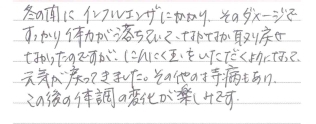 冬の間にインフルエンザにかかり、そのダメージで
すっかり体力がうち落ちていて、なかなか取り戻せ
なかったのですが、にんにく玉をいただくようになって、
元気が戻ってきました。その他の持病もあり、
この後の体調の変化が楽しみです。